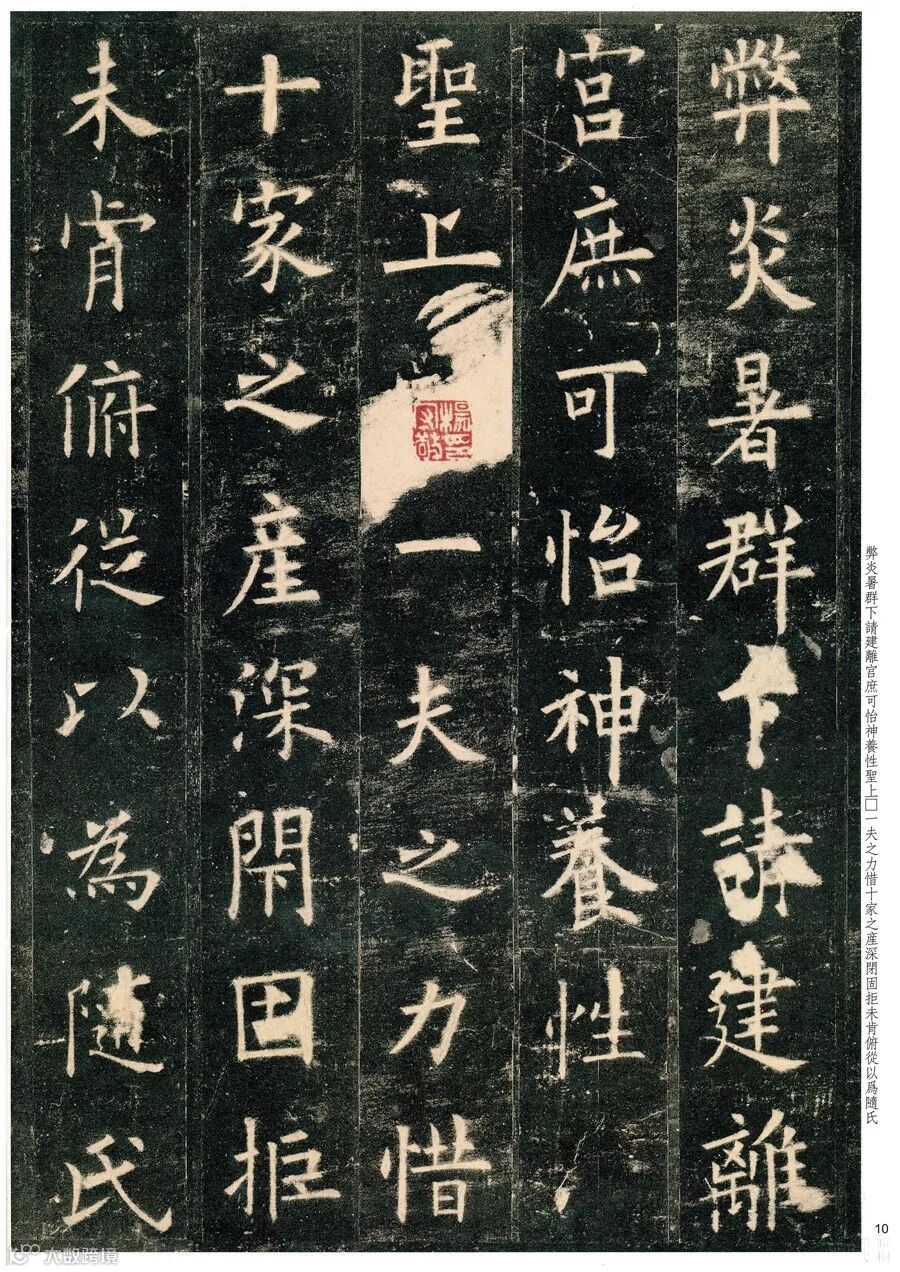 弊炎暑群下請建離
宮庶可怡神養性
聖上
一夫之力惜
十家之產深閇固拒
未肯俯從以為隨氏
弊炎暑群下請建離宫庶可怡神養性聖上□一夫之力惜十家之産深閉固拒未肯俯從以爲隨氏
10
大数跨境